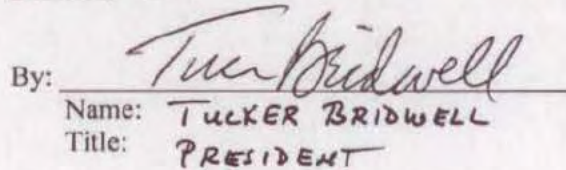 By: Tucker Bridwell
Name: TUCKER BRIDWELL
Title: PRESIDENT